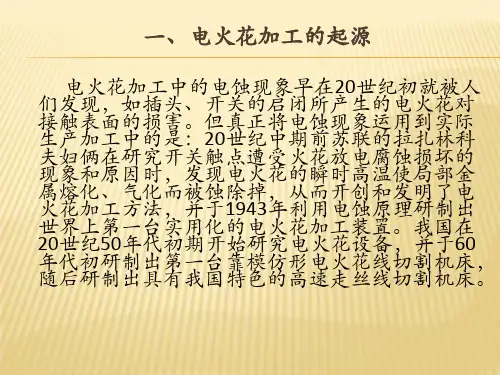 一、电火花加工的起源
电火花加工中的电蚀现象早在20世纪初就被人
们发现，如插头、开关的启闭所产生的电火花对
接触表面的损害。但真正将电蚀现象运用到实际
生产加工中的是：20世纪中期前苏联的拉扎林科
夫妇俩在研究开关触点遭受火花放电腐蚀损坏的
现象和原因时，发现电火花的瞬时高温使局部金
属熔化、气化而被蚀除掉，从而开创和发明了电
火花加工方法，并于1943年利用电蚀原理研制出
世界上第一台实用化的电火花加工装置。我国在
20世纪50年代初期开始研究电火花设备，并于60
年代初研制出第一台靠模仿形电火花线切割机床，
随后研制出具有我国特色的高速走丝线切割机床。